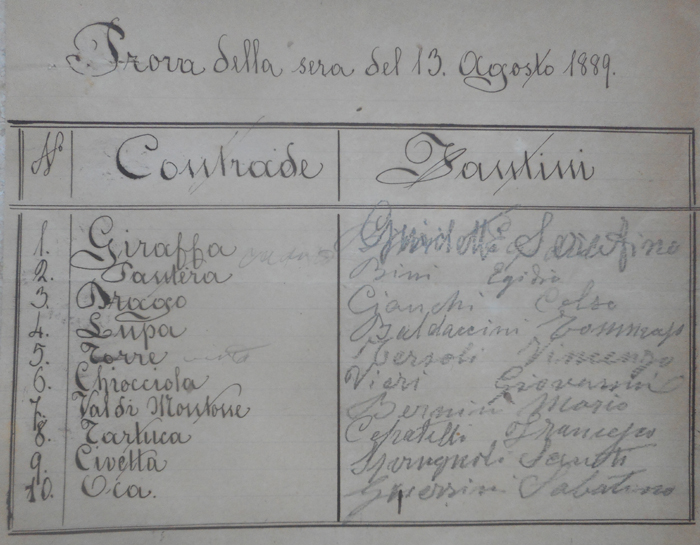 Prova della sera del 13. Agosto 1889.
N° Contrade Fantini
1. Giraffa Guidetti Serafino
2. Pantera Bini Egidio
3. Drago Cianchi Celso
4. Lupa Baldaccini Tommaso
5. Torre Vincenzo
6. Chiocciola Vieri Giovanni
7. Val di Montone Bernini Mario
8. Tartuca Francesco
9. Civetta
10. Oca. Sabatino